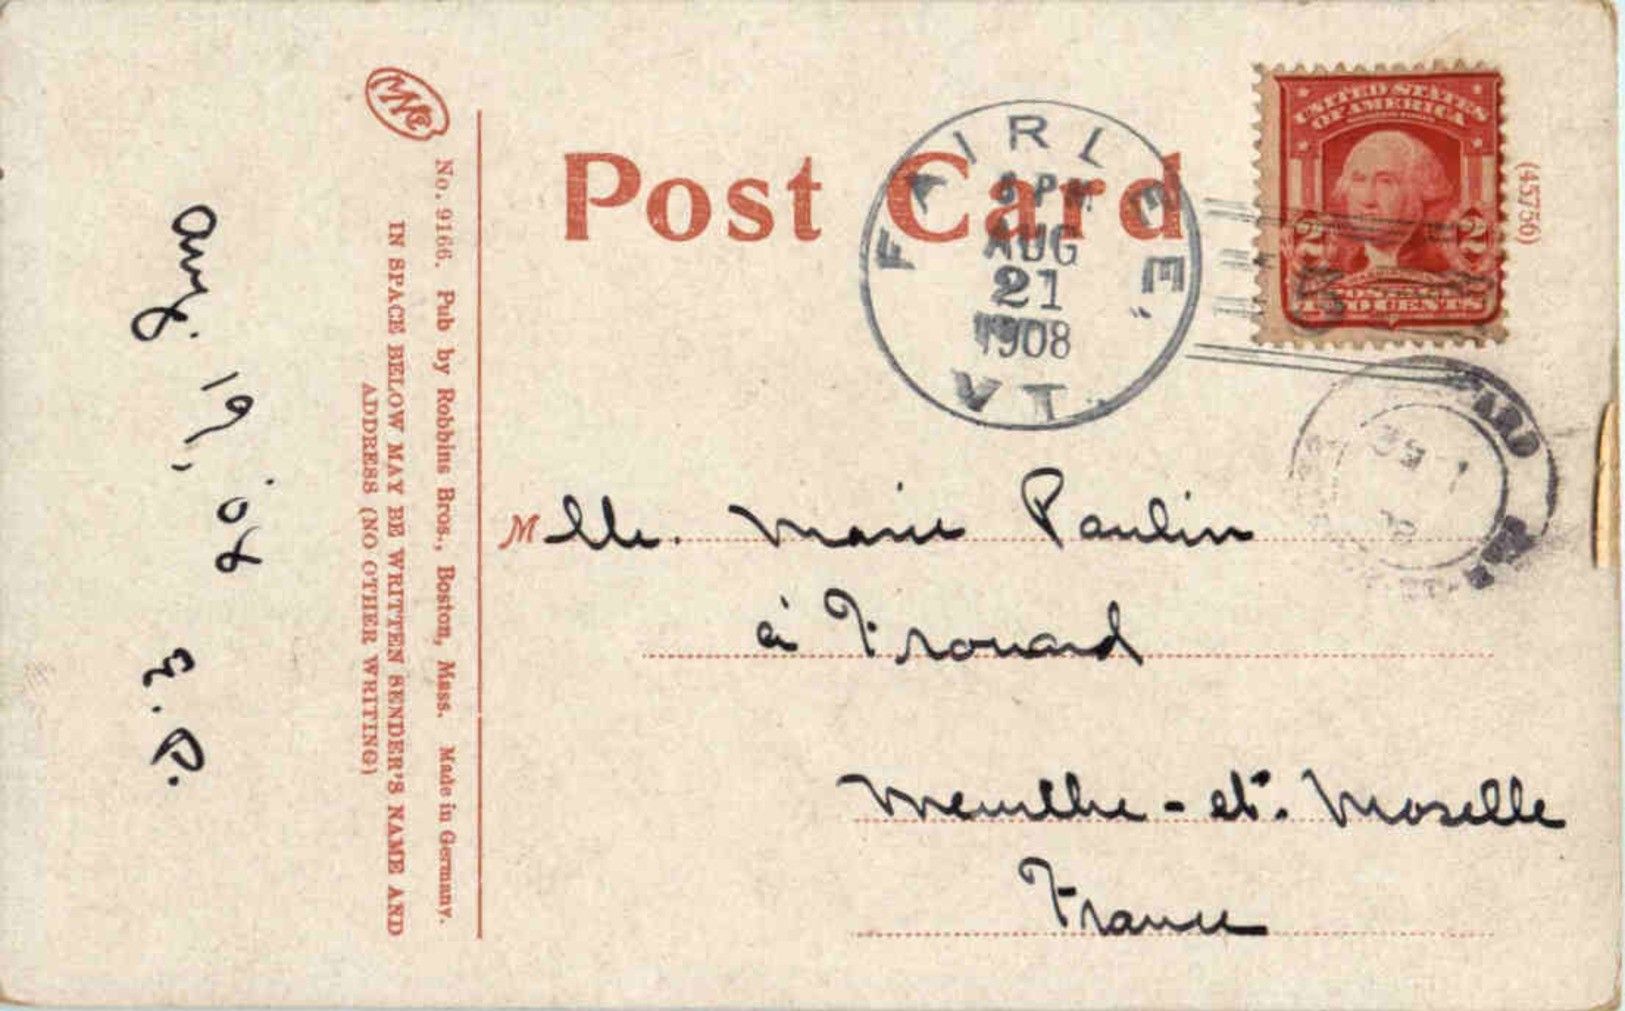 Post Card
FAIRLEE,
AUG
21
1908
VT.
UNITED STATES
OF AMERICA
2 2
POSTAGE
TWO CENTS
(45756)
No. 9166. Pub by Robbins Bros., Boston, Mass. Made in Germany.
IN SPACE BELOW MAY BE WRITTEN SENDER'S NAME AND
ADDRESS (NO OTHER WRITING)
Aug. 19, '08
E.P.
Mlle. Marie Paulin
à Frouard
Meurthe-et-Moselle
France